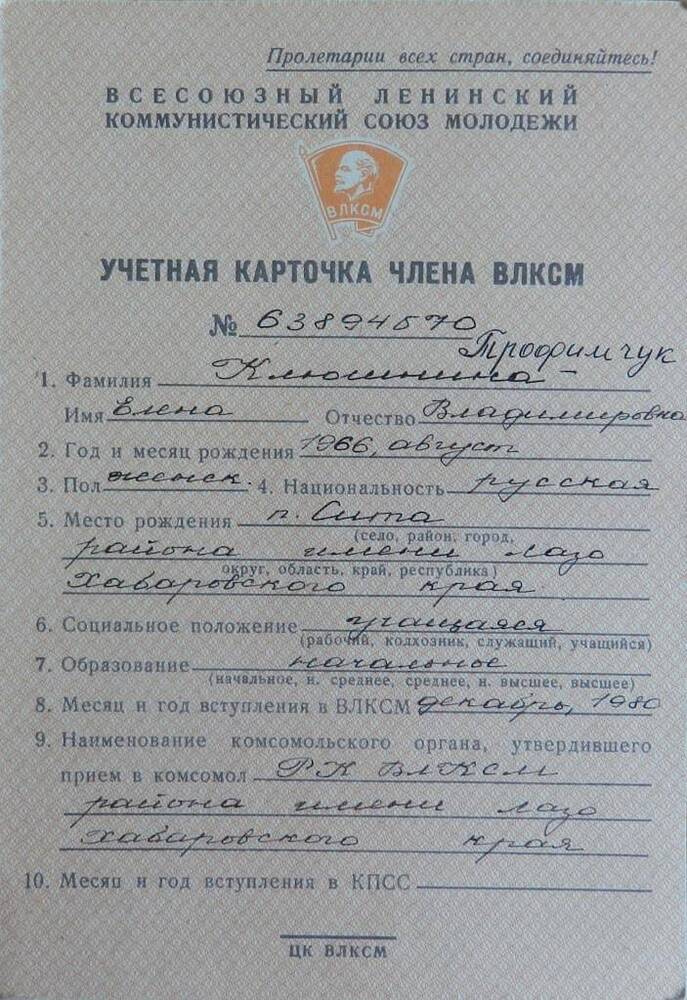 Пролетарии всех стран, соединяйтесь!
ВСЕСОЮЗНЫЙ ЛЕНИНСКИЙ
КОММУНИСТИЧЕСКИЙ СОЮЗ МОЛОДЕЖИ
ВЛКСМ
УЧЕТНАЯ КАРТОЧКА ЧЛЕНА ВЛКСМ
№ 63894570
Трофимчук
1. Фамилия Клюшкина
Имя Елена Отчество Владимировна
2. Год и месяц рождения 1966, август
3. Пол женск. 4. Национальность русская
5. Место рождения п. Сита
(село, район, город,
района имени Лазо
округ, область, край, республика)
Хабаровского края
6. Социальное положение учащаяся
(рабочий, колхозник, служащий, учащийся)
7. Образование начальное
(начальное, н. среднее, среднее, н. высшее, высшее)
8. Месяц и год вступления в ВЛКСМ декабрь, 1980
9. Наименование комсомольского органа, утвердившего
прием в комсомол РК ВЛКСМ
района имени Лазо
Хабаровского края
10. Месяц и год вступления в КПСС
ЦК ВЛКСМ